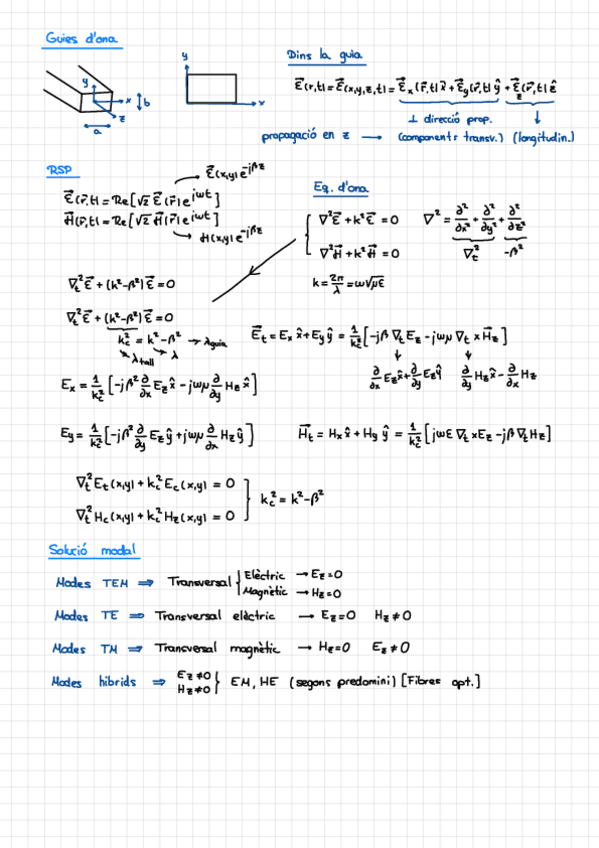 Guies d'ona
y
x
z
a
b
y
x
Dins la guia
ℰ⃗(r,t) = ℰ⃗(x,y,z,t) = ℰ⃗x(r⃗,t) x̂ + ℰ⃗y(r⃗,t) ŷ + ℰ⃗z(r⃗,t) ẑ
⊥ direcció prop.
propagació en z → (components transv.) (longitudin.)
RSP
E⃗(x,y) e^-jβz
ℰ⃗(r⃗,t) = Re[√2 E⃗(r⃗) e^jωt]
ℋ⃗(r⃗,t) = Re[√2 H⃗(r⃗) e^jωt]
H(x,y) e^-jβz
Eq. d'ona
∇²E⃗ + k²E⃗ = 0
∇²H⃗ + k²H⃗ = 0
∇² = ∂²/∂x² + ∂²/∂y² + ∂²/∂z²
∇t² -β²
k = 2π/λ = ω√με
∇t²E⃗ + (k²-β²)E⃗ = 0
∇t²E⃗ + (k²-β²)E⃗ = 0
kc² = k² - β² → λguia
λtall λ
E⃗t = Ex x̂ + Ey ŷ = 1/kc² [-jβ ∇t Ez - jωμ ∇t × H⃗z]
∂/∂x Ez x̂ + ∂/∂y Ez ŷ ∂/∂y Hz x̂ - ∂/∂x Hz
Ex = 1/kc² [-jβ² ∂/∂x Ez x̂ - jωμ ∂/∂y Hz x̂]
Ey = 1/kc² [-jβ² ∂/∂y Ez ŷ + jωμ ∂/∂x Hz ŷ]
H⃗t = Hx x̂ + Hy ŷ = 1/kc² [jωε ∇t × Ez - jβ ∇t Hz]
∇t² Et(x,y) + kc² Ec(x,y) = 0
∇t² Hc(x,y) + kc² Hz(x,y) = 0
kc² = k² - β²
Solució modal
Modes TEM ⇒ Transversal { Elèctric → Ez=0
Magnètic → Hz=0
Modes TE ⇒ Transversal elèctric → Ez=0 Hz≠0
Modes TM ⇒ Transversal magnètic → Hz=0 Ez≠0
Modes híbrids ⇒ Ez≠0
Hz≠0 } EM, HE (segons predomini) [Fibres opt.]